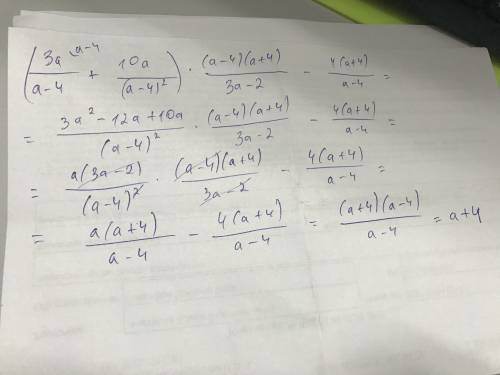 (3a^(a-4)/(a-4) + 10a/(a-4)²) · (a-4)(a+4)/(3a-2) - 4(a+4)/(a-4) =
= (3a² - 12a + 10a)/(a-4)² · (a-4)(a+4)/(3a-2) - 4(a+4)/(a-4) =
= a(3a-2)/(a-4)² · (a-4)(a+4)/(3a-2) - 4(a+4)/(a-4) =
= a(a+4)/(a-4) - 4(a+4)/(a-4) = (a+4)(a-4)/(a-4) = a+4